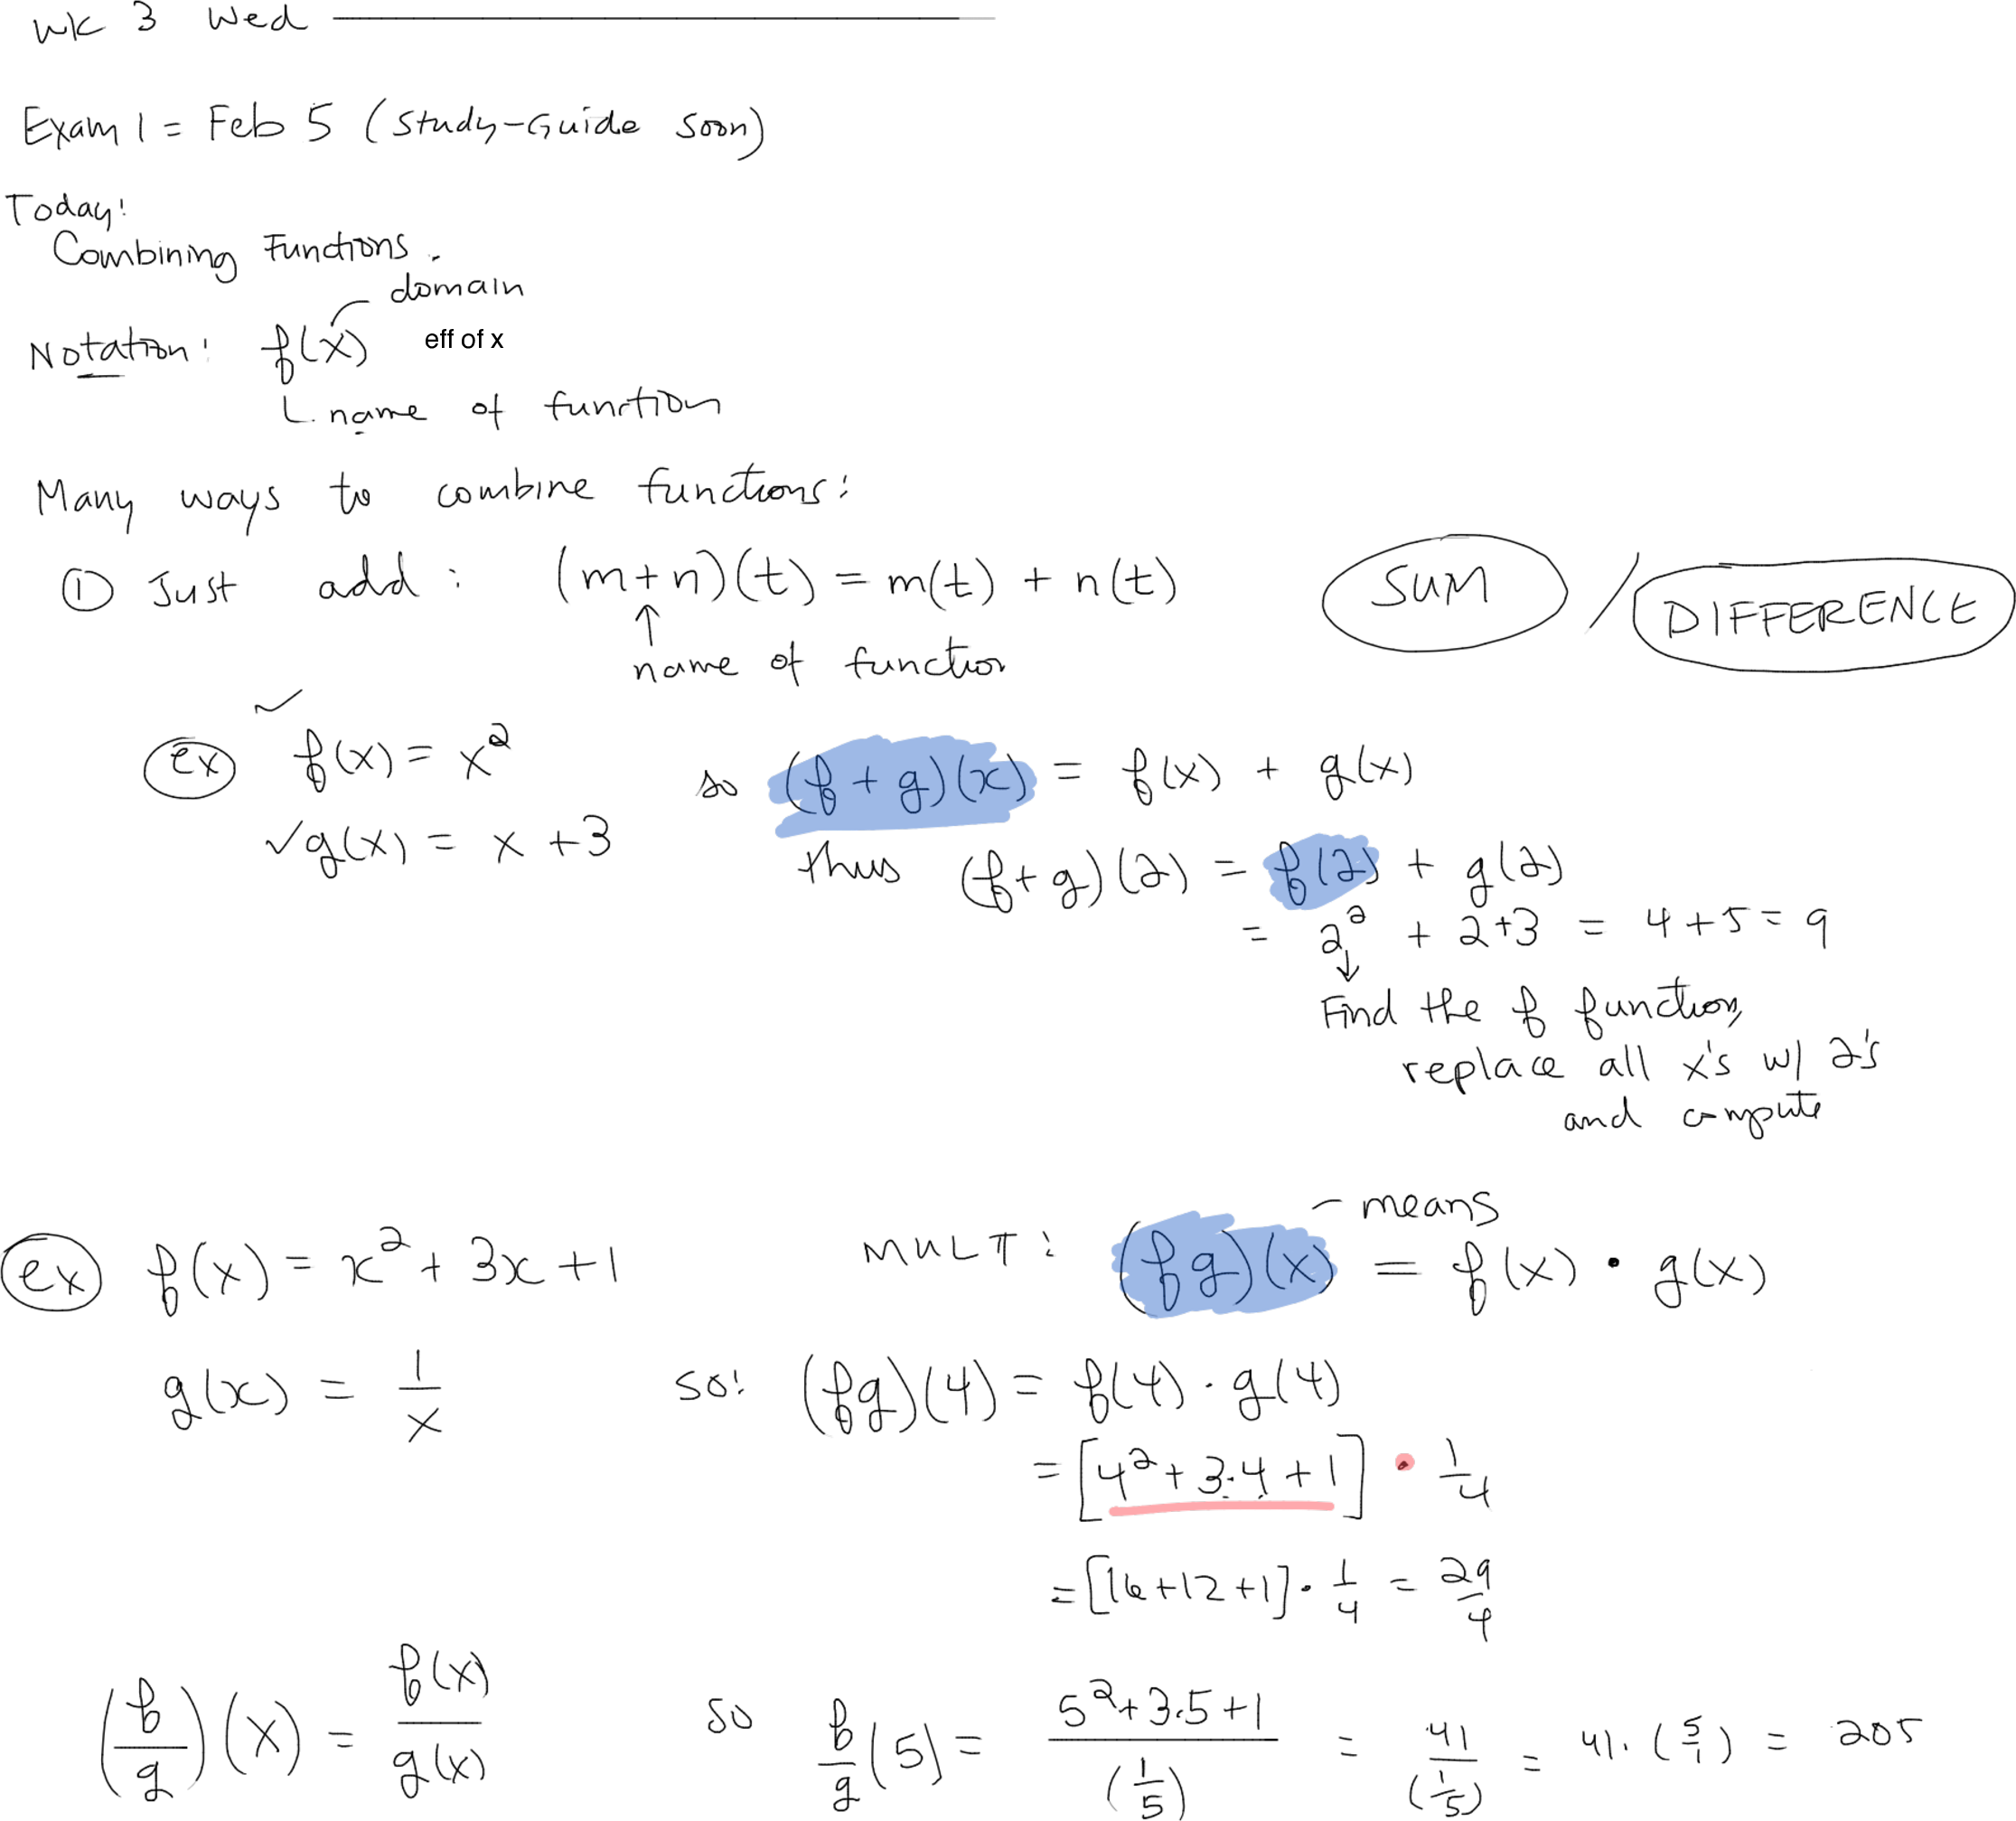 WK 3 Wed
Exam 1 = Feb 5 (Study-Guide Soon)
Today:
Combining Functions.
domain
Notation: f(x) eff of x
name of function
Many ways to combine functions:
① Just add: (m+n)(t) = m(t) + n(t) SUM / DIFFERENCE
name of function
ex f(x) = x² so (f+g)(x) = f(x) + g(x)
✓g(x) = x+3 thus (f+g)(2) = f(2) + g(2)
= 2² + 2+3 = 4+5 = 9
Find the f function,
replace all x's w/ 2's
and compute
means
ex f(x) = x² + 3x + 1 MULT: (fg)(x) = f(x) • g(x)
g(x) = 1/x so: (fg)(4) = f(4) · g(4)
= [4² + 3·4 + 1] • 1/4
= [16+12+1] • 1/4 = 29/4
(f/g)(x) = f(x)/g(x) so f/g(5) = (5²+3·5+1)/(1/5) = 41/(1/5) = 41·(5/1) = 205